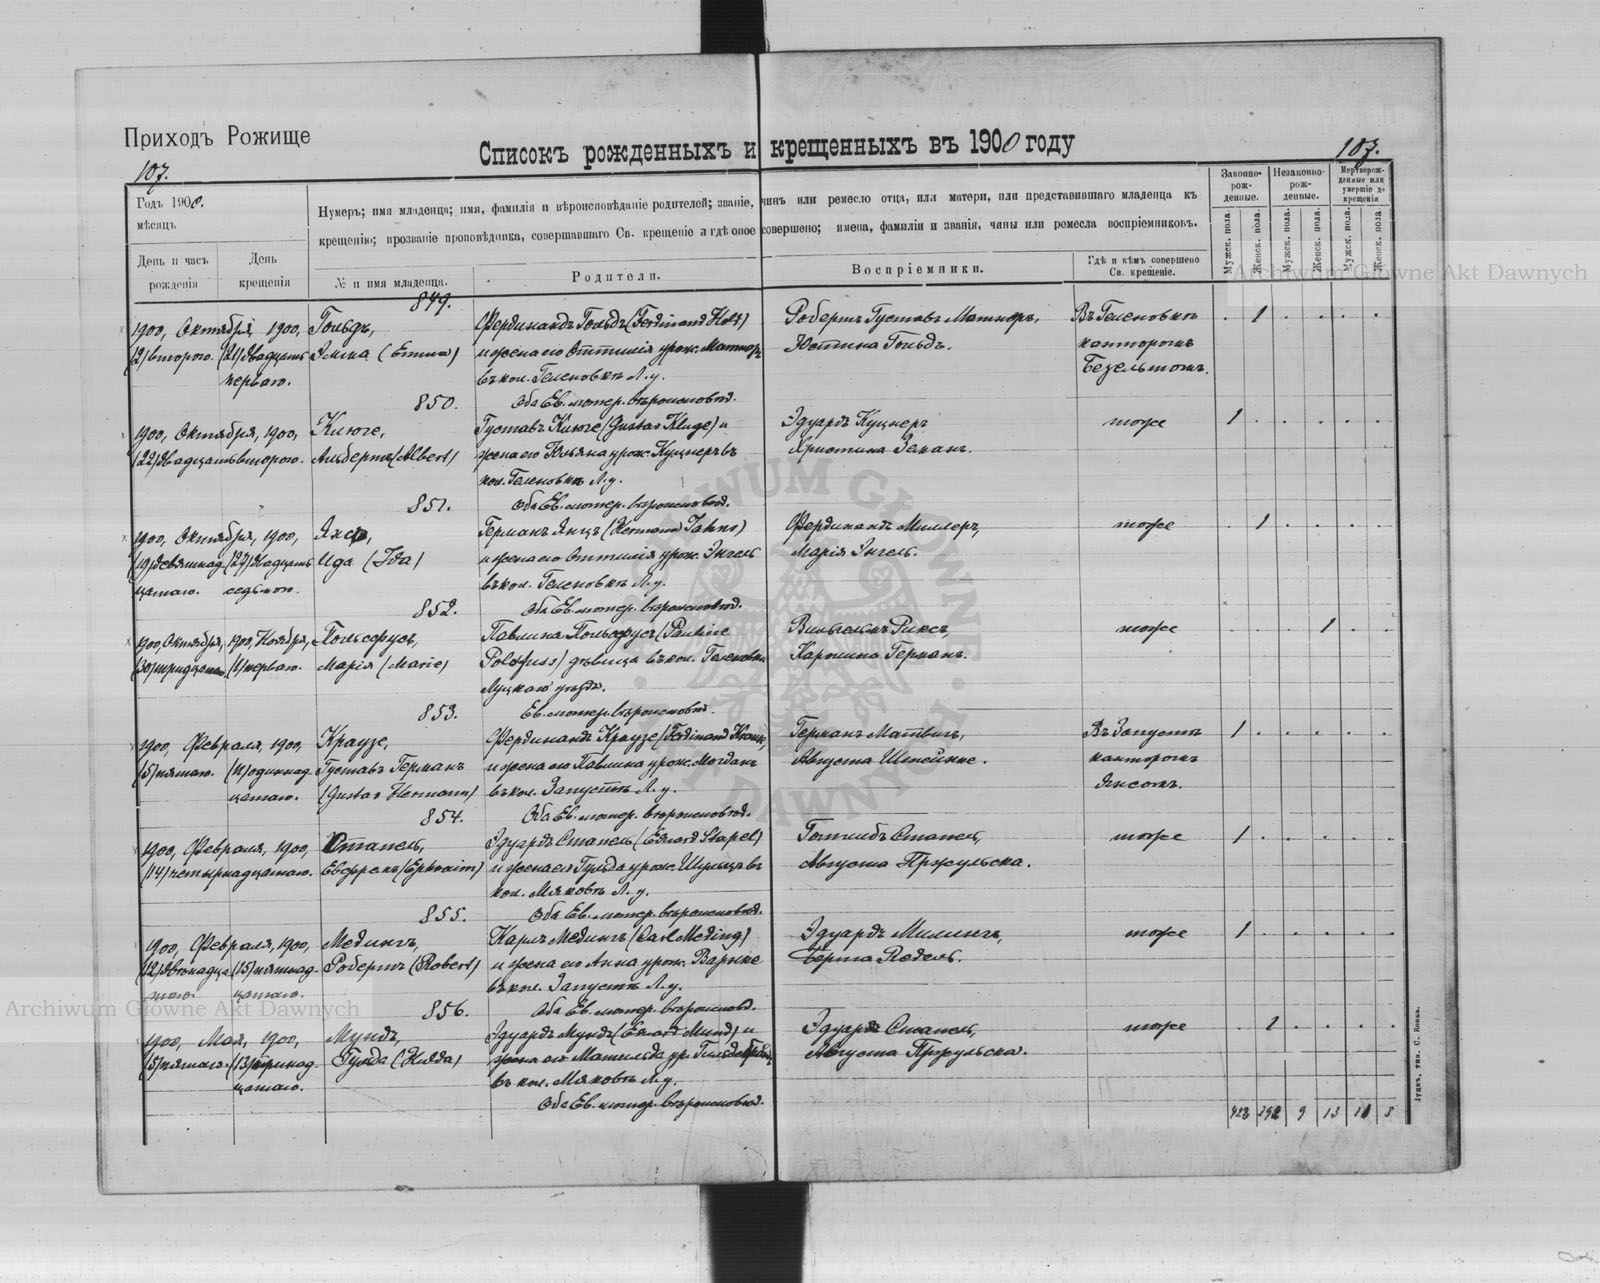 Приходъ Рожище
Списокъ рожденныхъ и крещенныхъ въ 1900 году
107.
107.
Годъ 1900.
мѣсяцъ
Нумеръ; имя младенца; имя, фамилія и вѣроисповѣданіе родителей; званіе, чинъ или ремесло отца, или матери, или представившаго младенца къ
крещенію; прозваніе проповѣдника, совершавшаго Св. крещеніе и гдѣ оное совершено; имена, фамиліи и званія, чины или ремесла воспріемниковъ.
Законно-
рож-
денные.
Незаконно-
рож-
денные.
Мертворож-
денные или
умершіе до
крещенія
Мужск. пола.
Женск. пола.
Мужск. пола.
Женск. пола.
Мужск. пола.
Женск. пола.
День и часъ
рожденія
День
крещенія
№ и имя младенца.
Родители.
Воспріемники.
Гдѣ и кѣмъ совершено
Св. крещеніе.
849.
1900, Октября, 1900, Гольдъ, Фердинандъ Гольдъ (Ferdinand Hold) Робертъ Густавъ Матнеръ, Въ Геленовкѣ 1
(2) второго. (21) двадцать Эмма (Emma) и жена его Оттилія урож. Матнеръ Юстина Гольдъ. канторомъ
перваго. въ кол. Геленовкѣ Л. у. Безельтомъ.
850. Оба Ев. лютер. вѣроисповѣд.
1900, Октября, 1900, Клюге, Густавъ Клюге (Gustav Kluge) и Эдуардъ Куцнеръ тоже 1
(22) двадцать второго. Альбертъ (Albert) жена его Юльяна урож. Куцнеръ въ Христина Земанъ.
кол. Геленовкѣ Л. у.
851. Оба Ев. лютер. вѣроисповѣд.
1900, Октября, 1900, Янсъ, Германъ Янцъ (Hermann Jahns) Фердинандъ Миллеръ, тоже 1
(19) девятнад- (27) двадцать Ида (Ida) и жена его Оттилія урож. Энгель Марія Энгель.
цатаго. седьмого. въ кол. Геленовкѣ Л. у.
852. Оба Ев. лютер. вѣроисповѣд.
1900, Октября, 1900, Ноября, Польсфусъ, Павлина Польсфусъ (Pauline Вильгельмъ Риксъ, тоже 1
(30) тридцатаго (1) перваго. Марія (Marie) Polsfuss) дѣвица въ кол. Геленовкѣ Каролина Германъ.
Луцкаго уѣзда.
853. Ев. лютер. вѣроисповѣд.
1900, Февраля, 1900, Краузе, Фердинандъ Краузе (Ferdinand Krause) Германъ Матвигъ, Въ Запустѣ 1
(5) пятаго. (11) одиннад- Густавъ Германъ и жена его Павлина урож. Могданъ Августа Штейнке. канторомъ
цатаго. (Gustav Hermann) въ кол. Запустѣ Л. у. Янсомъ.
854. Оба Ев. лютер. вѣроисповѣд.
1900, Февраля, 1900, Стапель, Эдуардъ Стапель (Eduard Stapel) Готлибъ Стапель, тоже 1
(14) четырнадцатаго. Евфремъ (Ephraim) и жена его Гульда урож. Шульцъ въ Августа Пржульска.
кол. Мяковѣ Л. у.
855. Оба Ев. лютер. вѣроисповѣд.
1900, Февраля, 1900, Медингъ, Карлъ Медингъ (Carl Meding) Эдуардъ Милингъ, тоже 1
(12) двѣнадца- (15) пятнад- Робертъ (Robert) и жена его Анна урож. Варнке Берта Радель.
таго цатаго. въ кол. Запустѣ Л. у.
856. Оба Ев. лютер. вѣроисповѣд.
1900, Мая, 1900, Мундъ, Эдуардъ Мундъ (Eduard Mund) и Эдуардъ Стапель, тоже 1
(5) пятаго. (13) тринад- Гульда (Hulda) жена его Матильда ур. Гильдебрандъ Августа Пржульска.
цатаго. въ кол. Мяковѣ Л. у.
Оба Ев. лютер. вѣроисповѣд.
428 392 9 13 11 8
Луцкъ, тип. С. Бонка.
Archiwum Główne Akt Dawnych
Archiwum Główne Akt Dawnych
ARCHIWUM GŁÓWNE AKT DAWNYCH